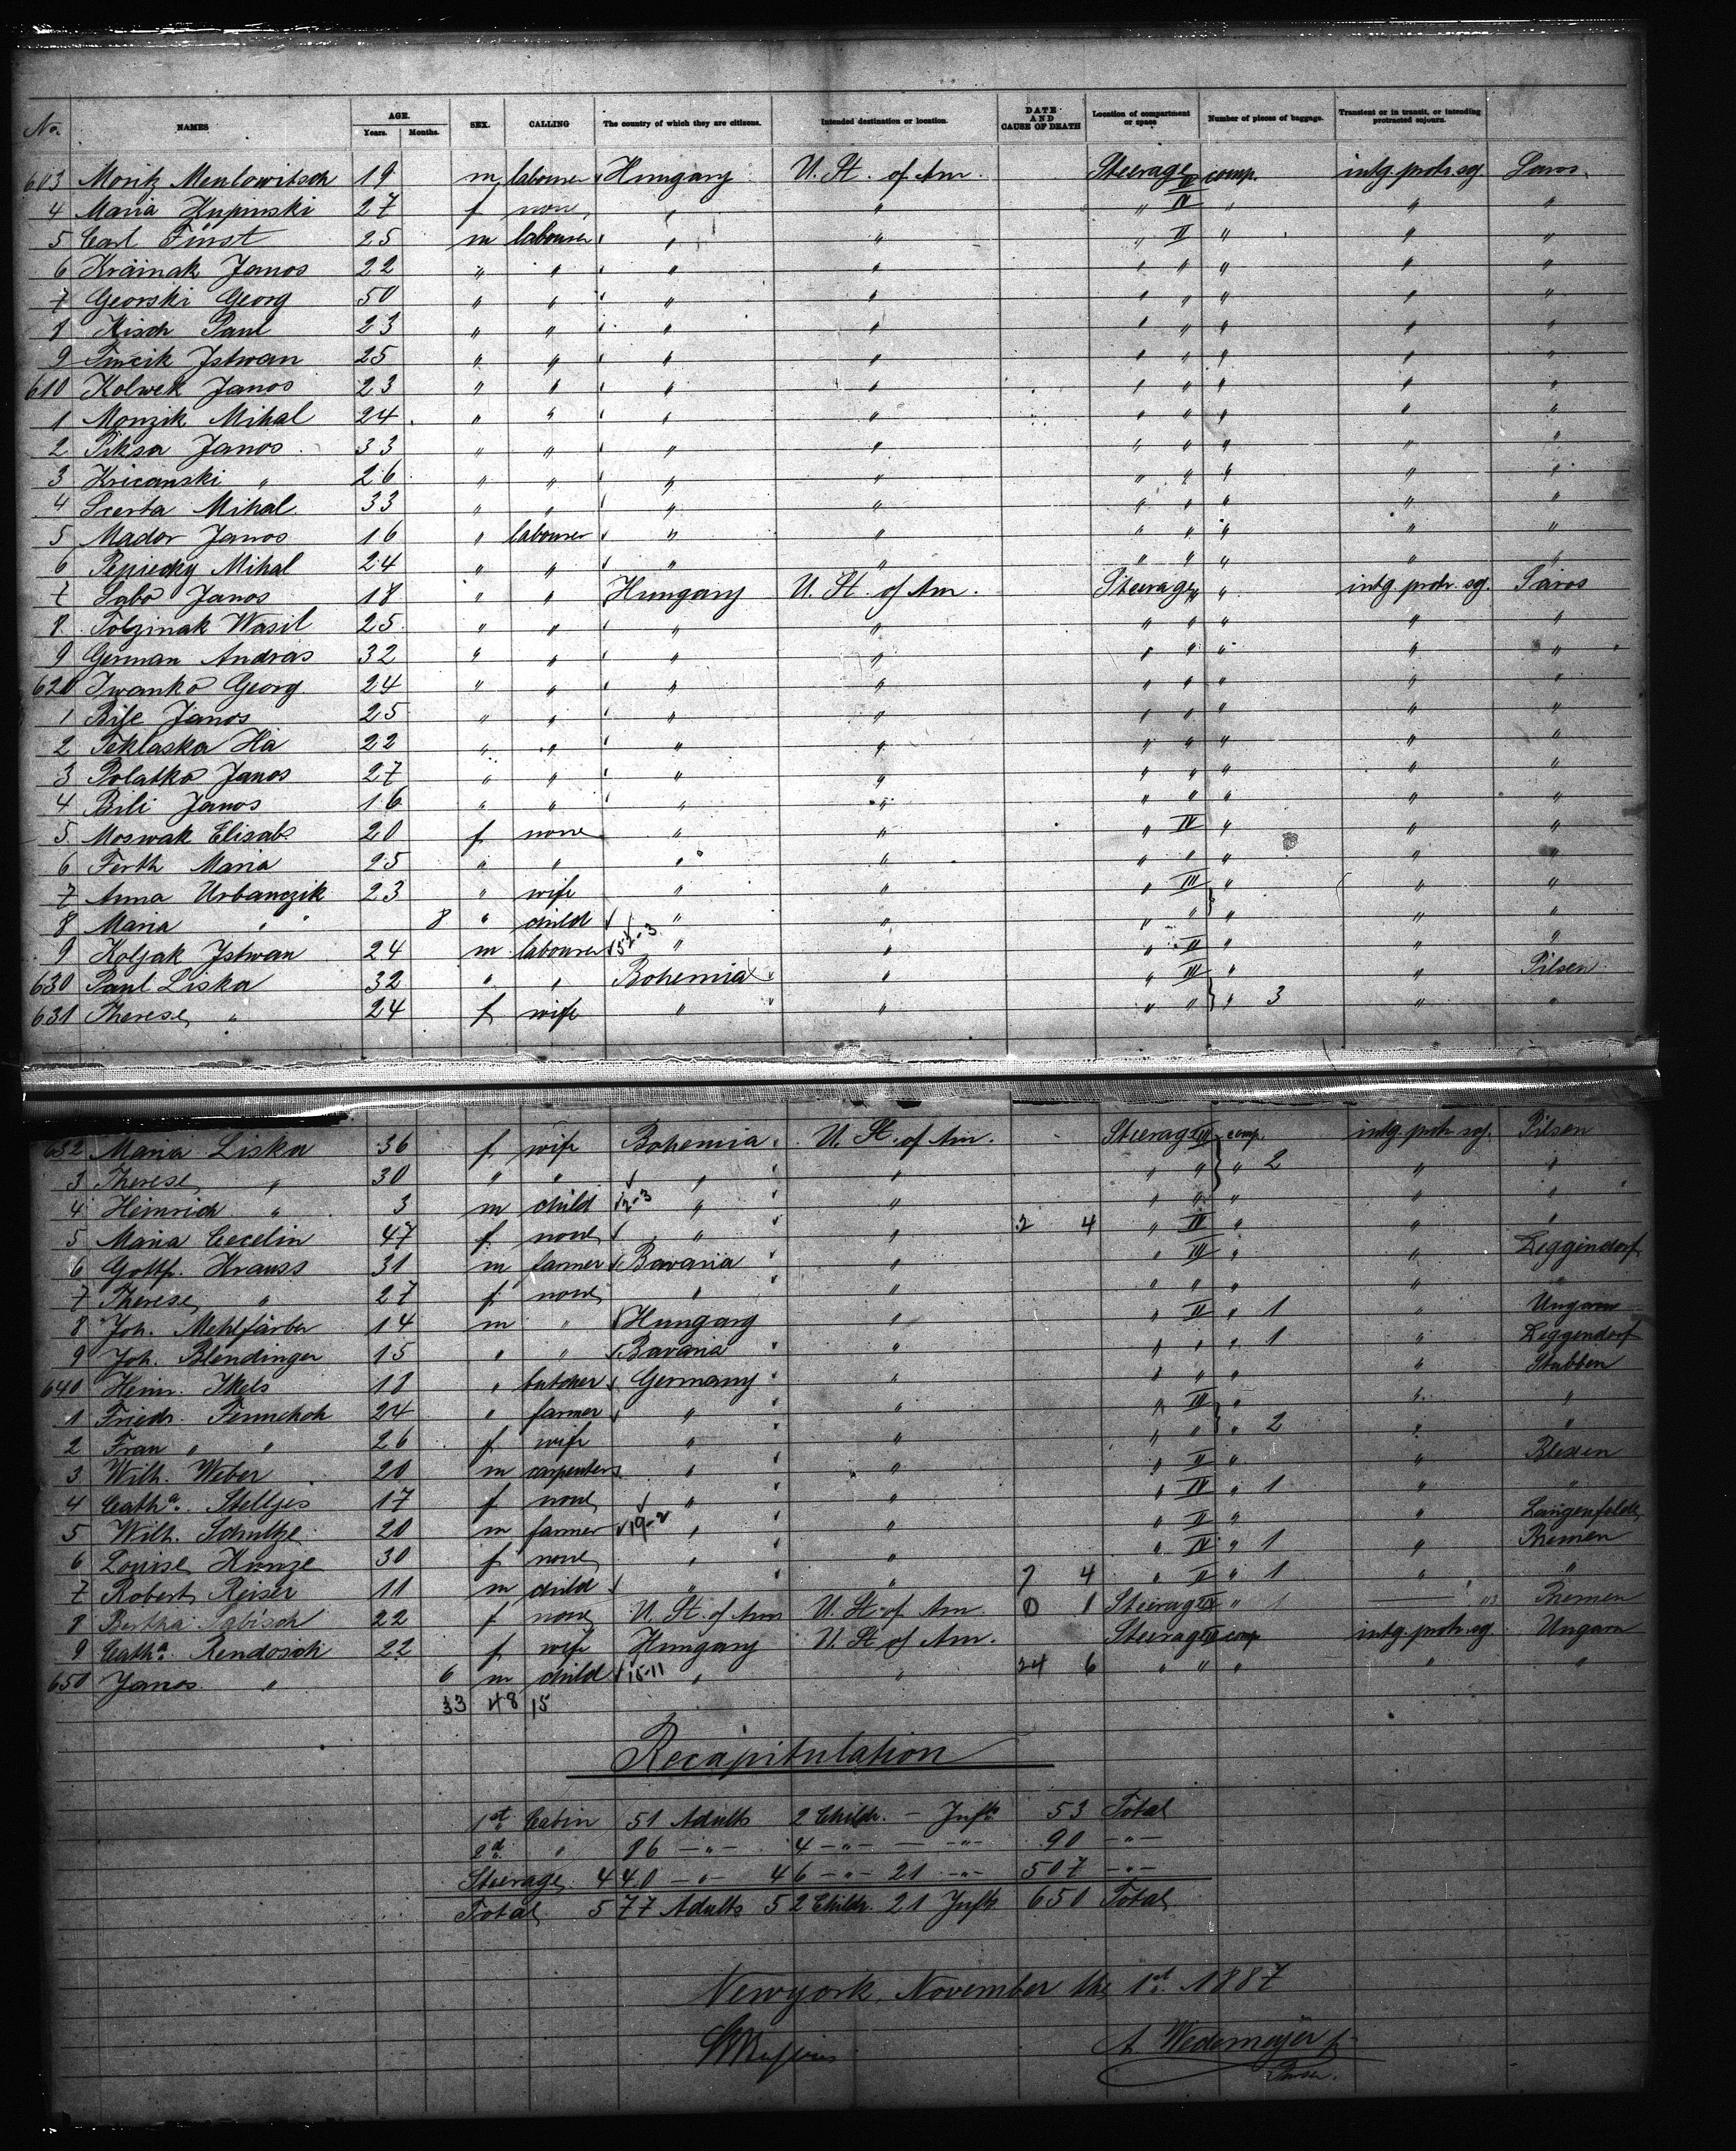 No. NAMES AGE. Years. Months. SEX. CALLING The country of which they are citizens. Intended destination or location. DATE AND CAUSE OF DEATH Location of compartment or space Number of pieces of baggage. Transient or in transit, or intending protracted sojourn.
603 Moritz Menlowitsch 19 m labourer Hungary U. St. of Am. Steerage II comp. intg. protr. sog Saros
4 Maria Kupinski 27 f none " " " IV " " "
5 Carl Fürst 25 m labourer " " " II " " "
6 Kräinak Janos 22 " " " " " " " " "
7 Georski Georg 50 " " " " " " " " "
8 Kisch Paul 23 " " " " " " " " "
9 Tincik Istwan 25 " " " " " " " " "
610 Kolwek Janos 23 " " " " " " " " "
1 Monzik Mihal 24 " " " " " " " " "
2 Piksa Janos 33 " " " " " " " " "
3 Kricanski " 26 " " " " " " " " "
4 Scerba Mihal 33 " " " " " " " " "
5 Mador Janos 16 " labourer " " " " " " "
6 Mihal 24 " " " " " " " " "
7 Sabo Janos 18 " " Hungary U. St. of Am. Steerage " " intg. protr. sog. Saros
8 Tobzinak Wasil 25 " " " " " " " " "
9 German Andras 32 " " " " " " " " "
620 Iwanko Georg 24 " " " " " " " " "
1 Bile Janos 25 " " " " " " " " "
2 Teklaska Ha 22 " " " " " " " " "
3 Polatko Janos 27 " " " " " " " " "
4 Bili Janos 16 " " " " " " " " "
5 Moswak Elisab. 20 f none " " " IV " " "
6 Ferth Maria 25 " " " " " " " " "
7 Anna Urbanczik 23 " wife " " " III " " "
8 Maria " 8 " child " " " " " " "
9 Koljak Istwan 24 m labourer 52-3 " " " II " " "
630 Paul Liska 32 " " Bohemia " " III " " Pilsen
631 Therese " 24 f wife " " " " " 3 " "
632 Maria Liska 36 f wife Bohemia U. St. of Am. Steerage III comp. intg. protr. sog. Pilsen
3 Therese " 30 " " " " " " " 2 " "
4 Heinrich " 3 m child 2-3 " " " " " " "
5 Maria Cecelin 47 f none " " 2 4 " IV " " "
6 Gottf. Krauss 31 m farmer Bavaria " " III " " Deggindorf
7 Therese " 27 f none " " " " " " "
8 Joh. Mehlfärber 14 m " Hungary " " II " 1 " Ungarn
9 Joh. Blendinger 15 " " Bavaria " " " " 1 " Deggendorf
640 Heinr. Ikels 18 " butcher Germany " " " " " Stubben
1 Friedr. Fennekoh 24 " farmer " " " III " " "
2 Frau " " 26 f wife " " " " " 2 " "
3 Wilh. Weber 20 m carpenter " " " II " " Blexen
4 Catha. Stelljes 17 f none " " " IV " 1 " "
5 Wilh. Schultze 20 m farmer 19-2 " " " II " Langenfelde
6 Louise Kunze 30 f none " " " IV " 1 " Bremen
7 Robert Reiser 11 m child " " 7 4 " II " 1 " "
8 Bertha 22 f none U. St. of Am U. St. of Am. 0 1 Steerage IV " 1 Bremen
9 Catha. Rendosch 22 f wife Hungary U. St of Am. Steerage comp intg. protr. sog Ungarn
650 Janos " 6 m child 15-11 " " 24 6 " " " " "
33 48 15
Recapitulation
1st Cabin 51 Adults 2 Childr. – Infts 53 Total
2d " 86 –"– 4 –"– – –"– 90 –"–
Steerage 440 –"– 46 –"– 21 –"– 507 –"–
Total 577 Adults 52 Childr. 21 Infts 650 Total
Newyork, November the 1st. 1887
A. Wedemeyer